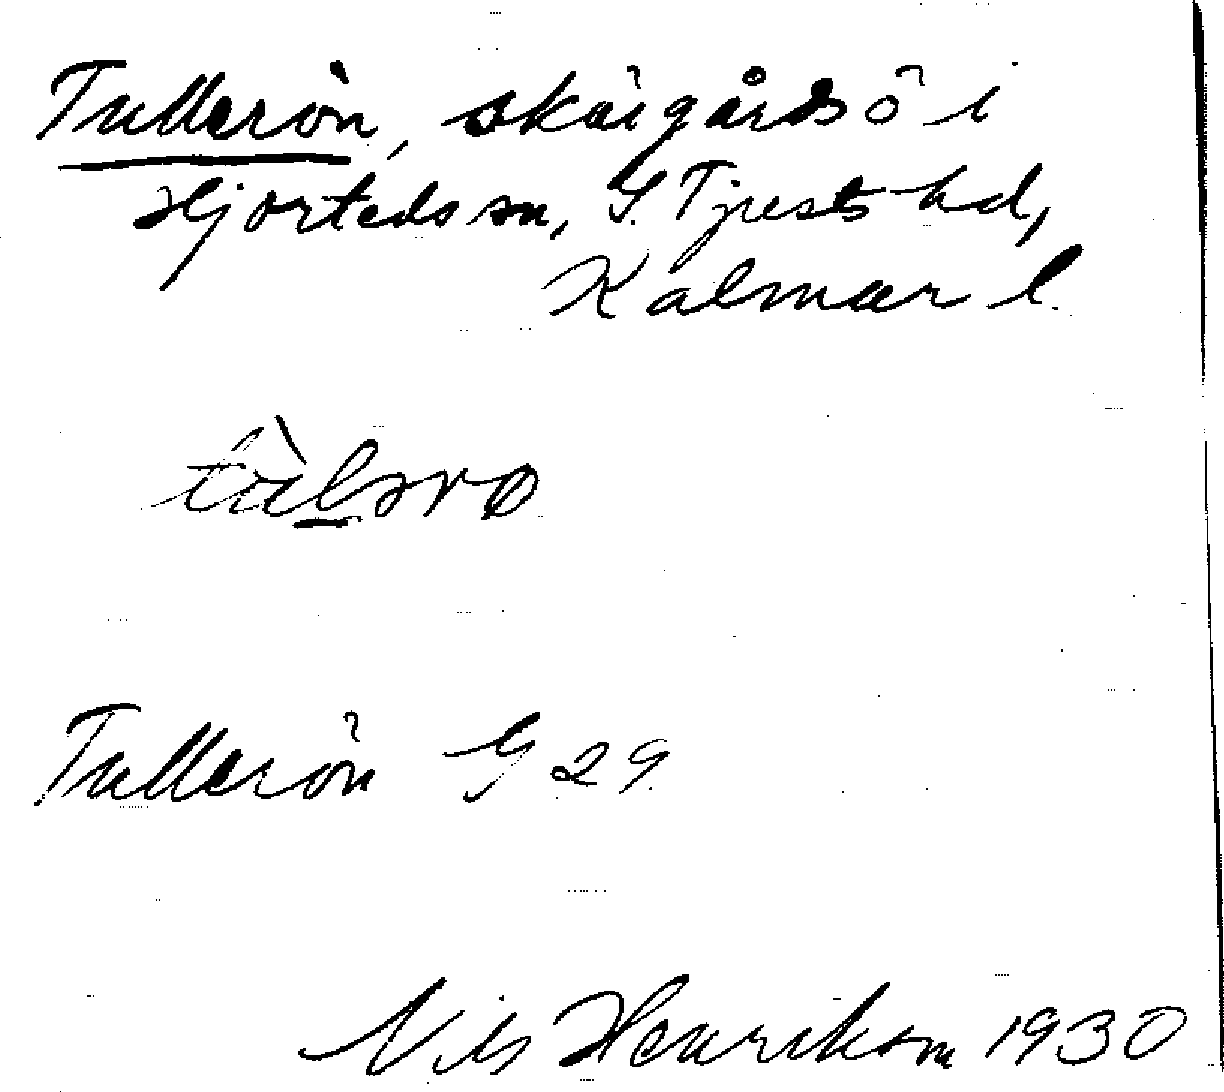 Tullerön, skärgårdsö i
Hjorteds sn, S. Tjusts hd,
Kalmar l.
Tullerön G 29
Nils Henrikson 1930